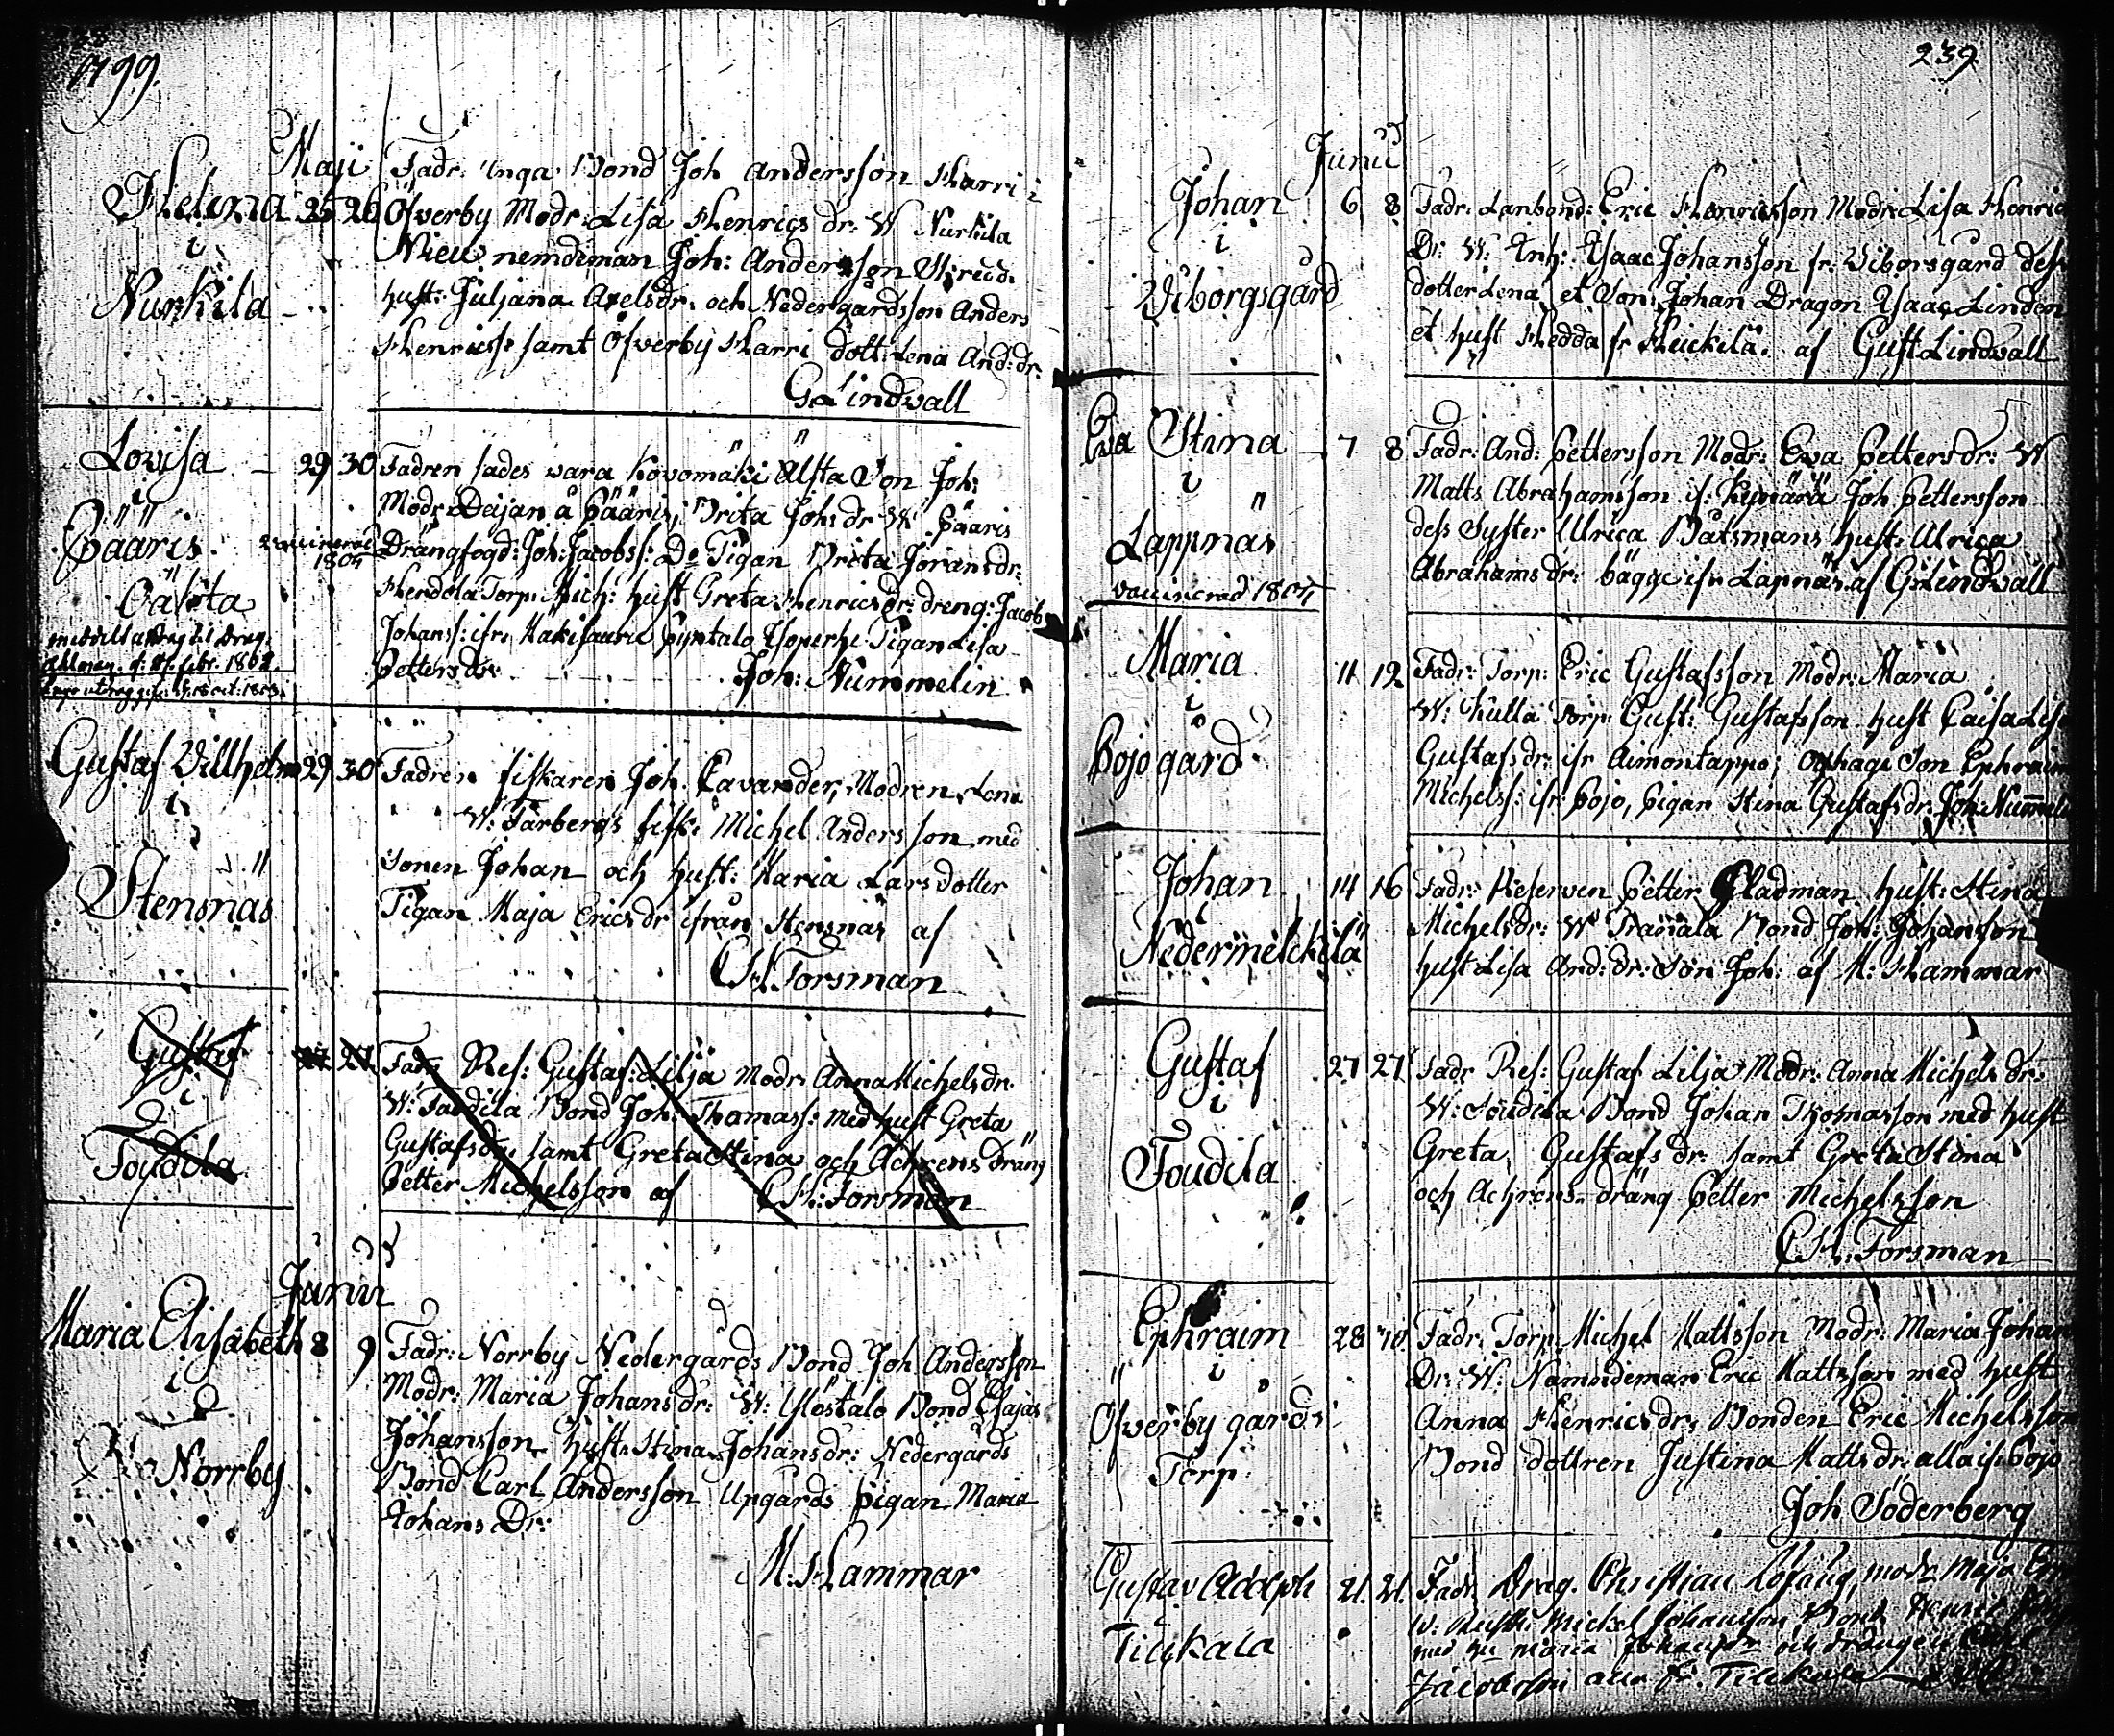 1799.
Maji
Helena 25 26
i
Nurkila
Fadr. unga Bond Joh Andersson Harri i
Öfverby Modr: Lisa Henrics dr: W Nurkila
Nieu nemdeman Joh: Andersson
hust: Juljana Axelsdr. och Nedergårdsson Anders
Henricss: samt Öfverby Harri dott: Lena And: dr.
G Lindvall
Lovisa 29 30
i
Pääris
vaccinerad
1804
Fadren sades vara Kovomäki Älsta Son Joh:
Modr: Deijan å Pääris, Brita Johs dr W Pääris
Drängfogd: Joh: Jacobss: Do Pigan Brita Joransdr:
Herdola Torp: Mich: hust Greta Henricsdr: dreng: Jacob
Johanss: ifr: Pigan Lisa
Pettersdr.
Joh: Nummelin
Gustaf Villhelm 29 30
i
Stensnäs
Fadren fiskaren Joh. Cavander, Modren Lena
W: Tarbergs fisk: Michel Andersson med
Sonen Johan och hust: Maria Larsdotter
Pigan Maja Ericsdr ifrån Stensnäs af
C H: Forsman
Gustaf 27 27
i
Toudila
Fadr Res: Gustaf: Lilja Modr. Anna Michelsdr.
W: Toudila Bond Joh: Thomass: med hust Greta
Gustafsdr. samt Greta Stina och Achrens dräng
Petter Michelsson af C H: Forsman
Junii
Maria Elisabeth 8 9
i
Norrby
Fadr: Norrby Nedergårds Bond Joh Andersson
Modr: Maria Johansdr: W: Ylöstalo Bond Esajas
Johansson hust: Stina Johansdr: Nedergårds
Bond Carl Andersson Upgårds Pigan Maria
Johans Dr:
M: Hammar
239
Junii
Johan 6 8
i
Viborgsgård
Fadr: Lanbond: Eric Henricsson Modr: Lisa Henrics
Dr: W: Enh: Isaac Johansson fr: Viborsgård dess
dotter Lena, et Son: Johan Dragon Isaac Linden
et hust Hedda fr Heickilä. af Gust Lindvall
Eva Stina 7 8
i
Lappnäs
vaccinerad 1804
Fadr: And: Pettersson Modr: Ewa Petters dr: W
Matts Abrahamsson if: Joh Pettersson
dess Syster Ulrica Båtsmans hust: Ulrica
Abrahams dr: bägge ifr Lapnäs af G: Lindvall
Maria 11 12
i
Pojo gård
Fadr: Torp: Eric Gustafsson Modr: Maria
W: Kulla Torp: Gust: Gustafsson hust Caisa Lisa
Gustafs dr: ifr Aimontappo; Son Ephraim
Michelss: ifr: Pojo, Pigan Stina Gustafsdr: Joh: Nummelin
Johan 14 16
i
Nedermelckilä
Fadr: Reserven Petter Gladman hust: Stina
Michelsdr: W Bond Joh: Johansson
hust Lisa And: dr: Son Joh: af M: Hammar
Gustaf 27 27
i
Toudila
Fadr Res: Gustaf Lilja Modr: Anna Michels dr:
W: Toudila Bond Johan Thomasson med hust
Greta Gustafs dr: samt Greta Stina
och Achrens dräng Petter Michelsson
C H: Forsman
Ephraim 28
i
Öfverby gårds
Torp
Fadr: Torp: Michel Mattsson Modr: Maria Johan
Dr: W: Nämndeman Eric Mattsson med hust
Anna Henricsdr, Bonden Eric Michelsson
Bond dottren Justina Matts dr: alla if: Pojo
Joh Söderberg
Gustav Adolph 21. 21.
Tilikala
Fadr Drag. Christian modr. Maja
W: Michel Johansson Bond Henric
med hu Maria och drängen
Jacobsson alla fr. Tilikala